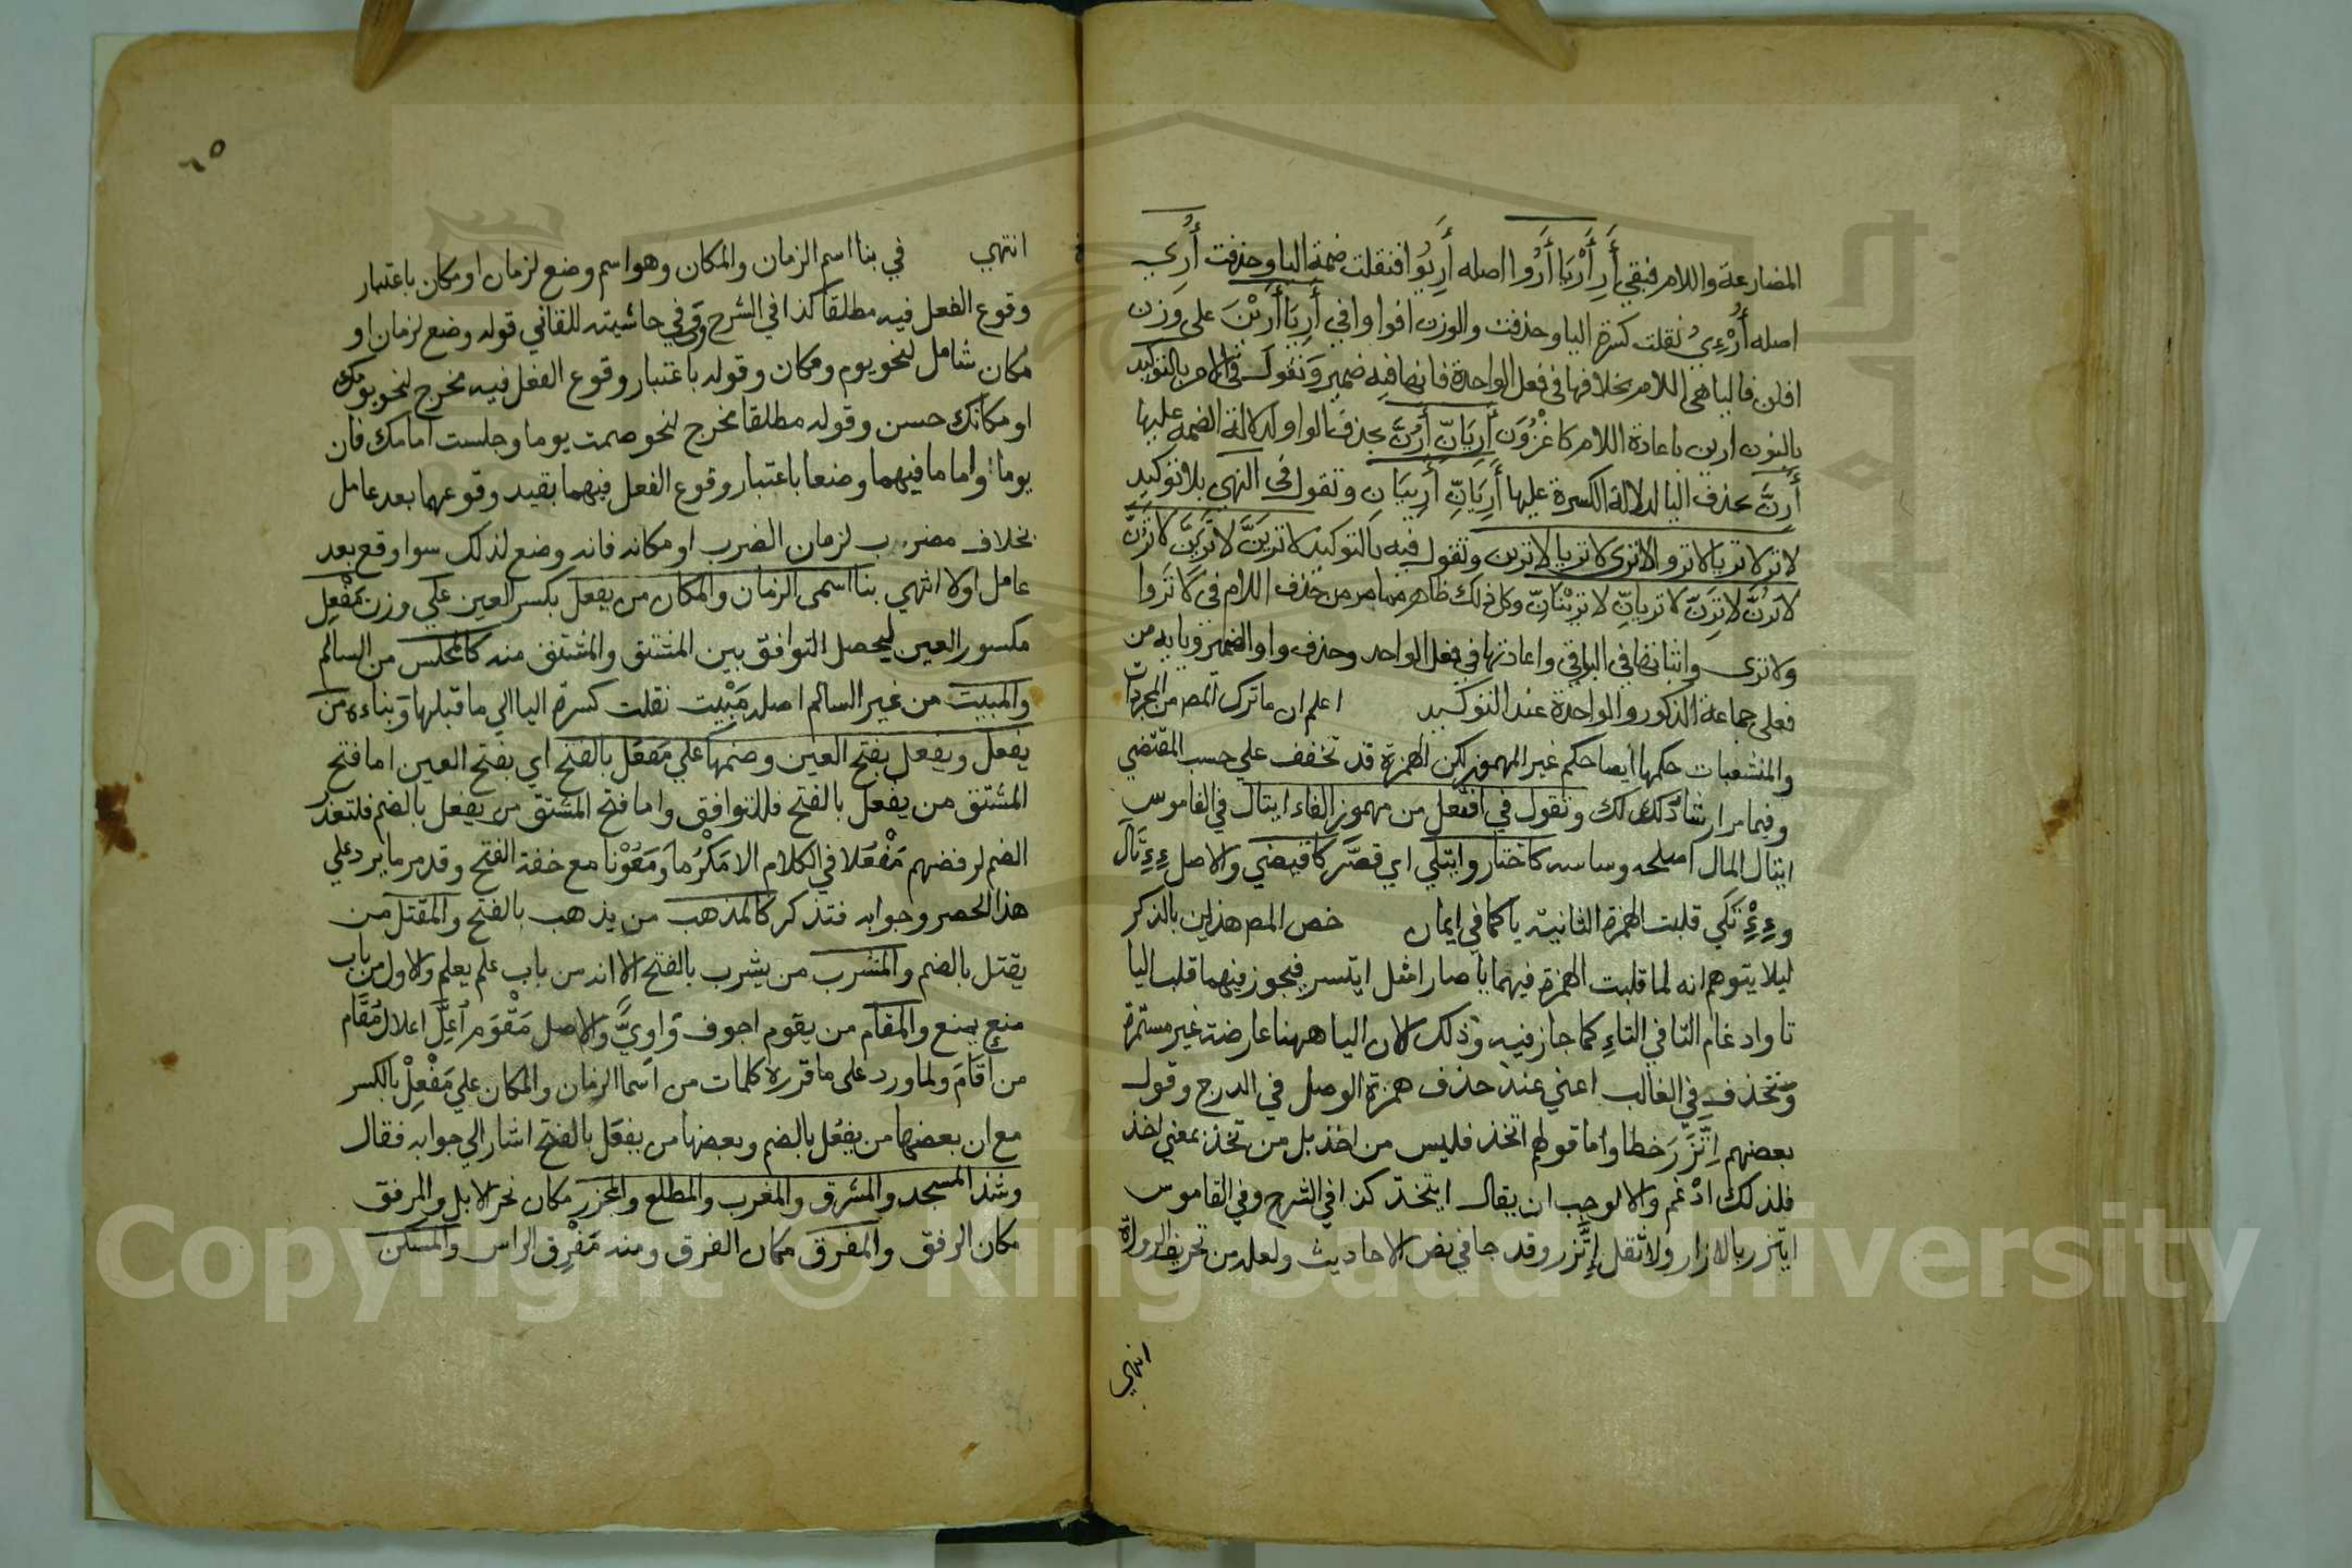 المضارعة واللام فبقي أَرِ أَرْيَا أَرُوا اصله أَرِيُوا فنقلت ضمة اليا وحذفت أَرِي
اصله أَرْءِيُ نقلت كسرة اليا وحذفت والوزن افوا وافي أَرِيَا أَرِيْنَ على وزن
افلن فاليا هي اللام بخلافها في فعل الواحدة فانها فيه ضمير وتقول في الامر بالتوكيد
بالنون ارين باعادة اللام كاغْزُوَن أَرِيَانِّ أَرُنَّ بحذف الواو لدلالة الضمة عليها
أَرِنَّ بحذف اليا لدلالة الكسرة عليها أَرِيَانِّ أَرِينَانِ وتقول في النهي بلا توكيد
لا تر لا تريا لا تروا لا تري لا تريا لا ترين وتقول فيه بالتوكيد لا تريَنَّ لا تريَنَّ لا ترُنَّ
لا ترُنَّ لا ترِنَّ لا تريانِّ لا تريْنَانِّ وكل ذلك ظاهر مما مر من حذف اللام في لا تروا
ولا تري واثباتها في البواقي واعادتها في فعل الواحد وحذف واو الضمير ويايه من
فعلي جماعة الذكور والواحدة عند التوكيد اعلم ان ما ترك المص من المجردات
والمنشعبات حكمها ايضا حكم غير المهموز لكن الهمزة قد تخفف علي حسب المقتضي
وفيما مر ارشاد لك وتقول في افتعل من مهموز الفاء ايتال في القاموس
ايتال المال اصلحه وساسه كاختار وايتلي اي قصّر كاقتضي والاصل ءِءْتَال
وءِءْتَلَي قلبت الهمزة الثانية يا كما في ايمان خص المص هذين بالذكر
ليلا يتوهم انه لما قلبت الهمزة فيهما يا صارا مثل ايتسر فيجوز فيهما قلب اليا
تا وادغام التا في التاءِ كما جاز فيه وذلك لان اليا ههنا عارضة غير مستمرة
وتحذف في الغالب اعني عند حذف همزة الوصل في الدرج وقول
بعضهم اِتَّزَرَ خطا واما قولهم اتخذ فليس من اخذ بل من تخذ بمعني اخذ
فلذلك ادْغم والا لوجب ان يقال ايتخذ كذا في الشرح وفي القاموس
ايتزر بالازار ولا تقل اِتَّزر وقد جا في بعض الاحاديث ولعله من تحريف الرواة
انتهي
٦٥
انتهي في بنا اسم الزمان والمكان وهو اسم وضع لزمان او مكان باعتبار
وقوع الفعل فيه مطلقا كذا في الشرح وفي حاشيته للقاني قوله وضع لزمان او
مكان شامل لنحو يوم ومكان وقوله باعتبار وقوع الفعل فيه مخرج لنحو يومك
او مكانك حسن وقوله مطلقا مخرج لنحو صمت يوما وجلست امامك فان
يوما واماما فيهما وضعا باعتبار وقوع الفعل فيهما بقيد وقوعهما بعد عامل
بخلاف مضرب لزمان الضرب او مكانه فانه وضع لذلك سوا وقع بعد
عامل اولا انتهي بنا اسمى الزمان والمكان من يفعل بكسر العين علي وزن مَفْعِل
مكسور العين ليحصل التوافق بين المشتق والمشتق منه كالمجلس من السالم
والمبيت من غير السالم اصله مَبْيِت نقلت كسرة اليا الي ما قبلها وبناءه من
يفعل ويفعل بفتح العين وضمها علي مَفعَل بالفتح اي بفتح العين اما فتح
المشتق من يفعل بالفتح فللتوافق واما فتح المشتق من يفعل بالضم فلتعذر
الضم لرفضهم مَفْعُلا في الكلام الا مَكْرُما ومَعُوْنا مع خفة الفتح وقد مر ما يرد علي
هذا الحصر وجوابه فتذكر كالمذهب من يذهب بالفتح والمقتل من
يقتل بالضم والمشرب من يشرب بالفتح الا انه من باب علم يعلم والاول من باب
منع يمنع والمقام من يقوم اجوف واويٌّ والاصل مَقْوَم أُعِلَّ اعلال مُقَام
من أَقَامَ ولما ورد على ما قرره كلمات من اسما الزمان والمكان علي مَفْعِلْ بالكسر
مع ان بعضها من يفعُل بالضم وبعضها من يفعَل بالفتح اشار الي جوابه فقال
وشذ المسجد والمشرق والمغرب والمطلع والمجزر مكان نحر الابل والمرفق
مكان الرفق والمفرق مكان الفرق ومنه مَفْرِق الراس والمسكن
Copyright © King Saud University